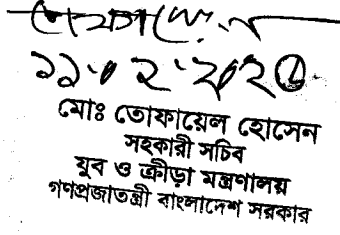 মোঃ তোফায়েল হোসেন
সহকারী সচিব
যুব ও ক্রীড়া মন্ত্রণালয়
গণপ্রজাতন্ত্রী বাংলাদেশ সরকার